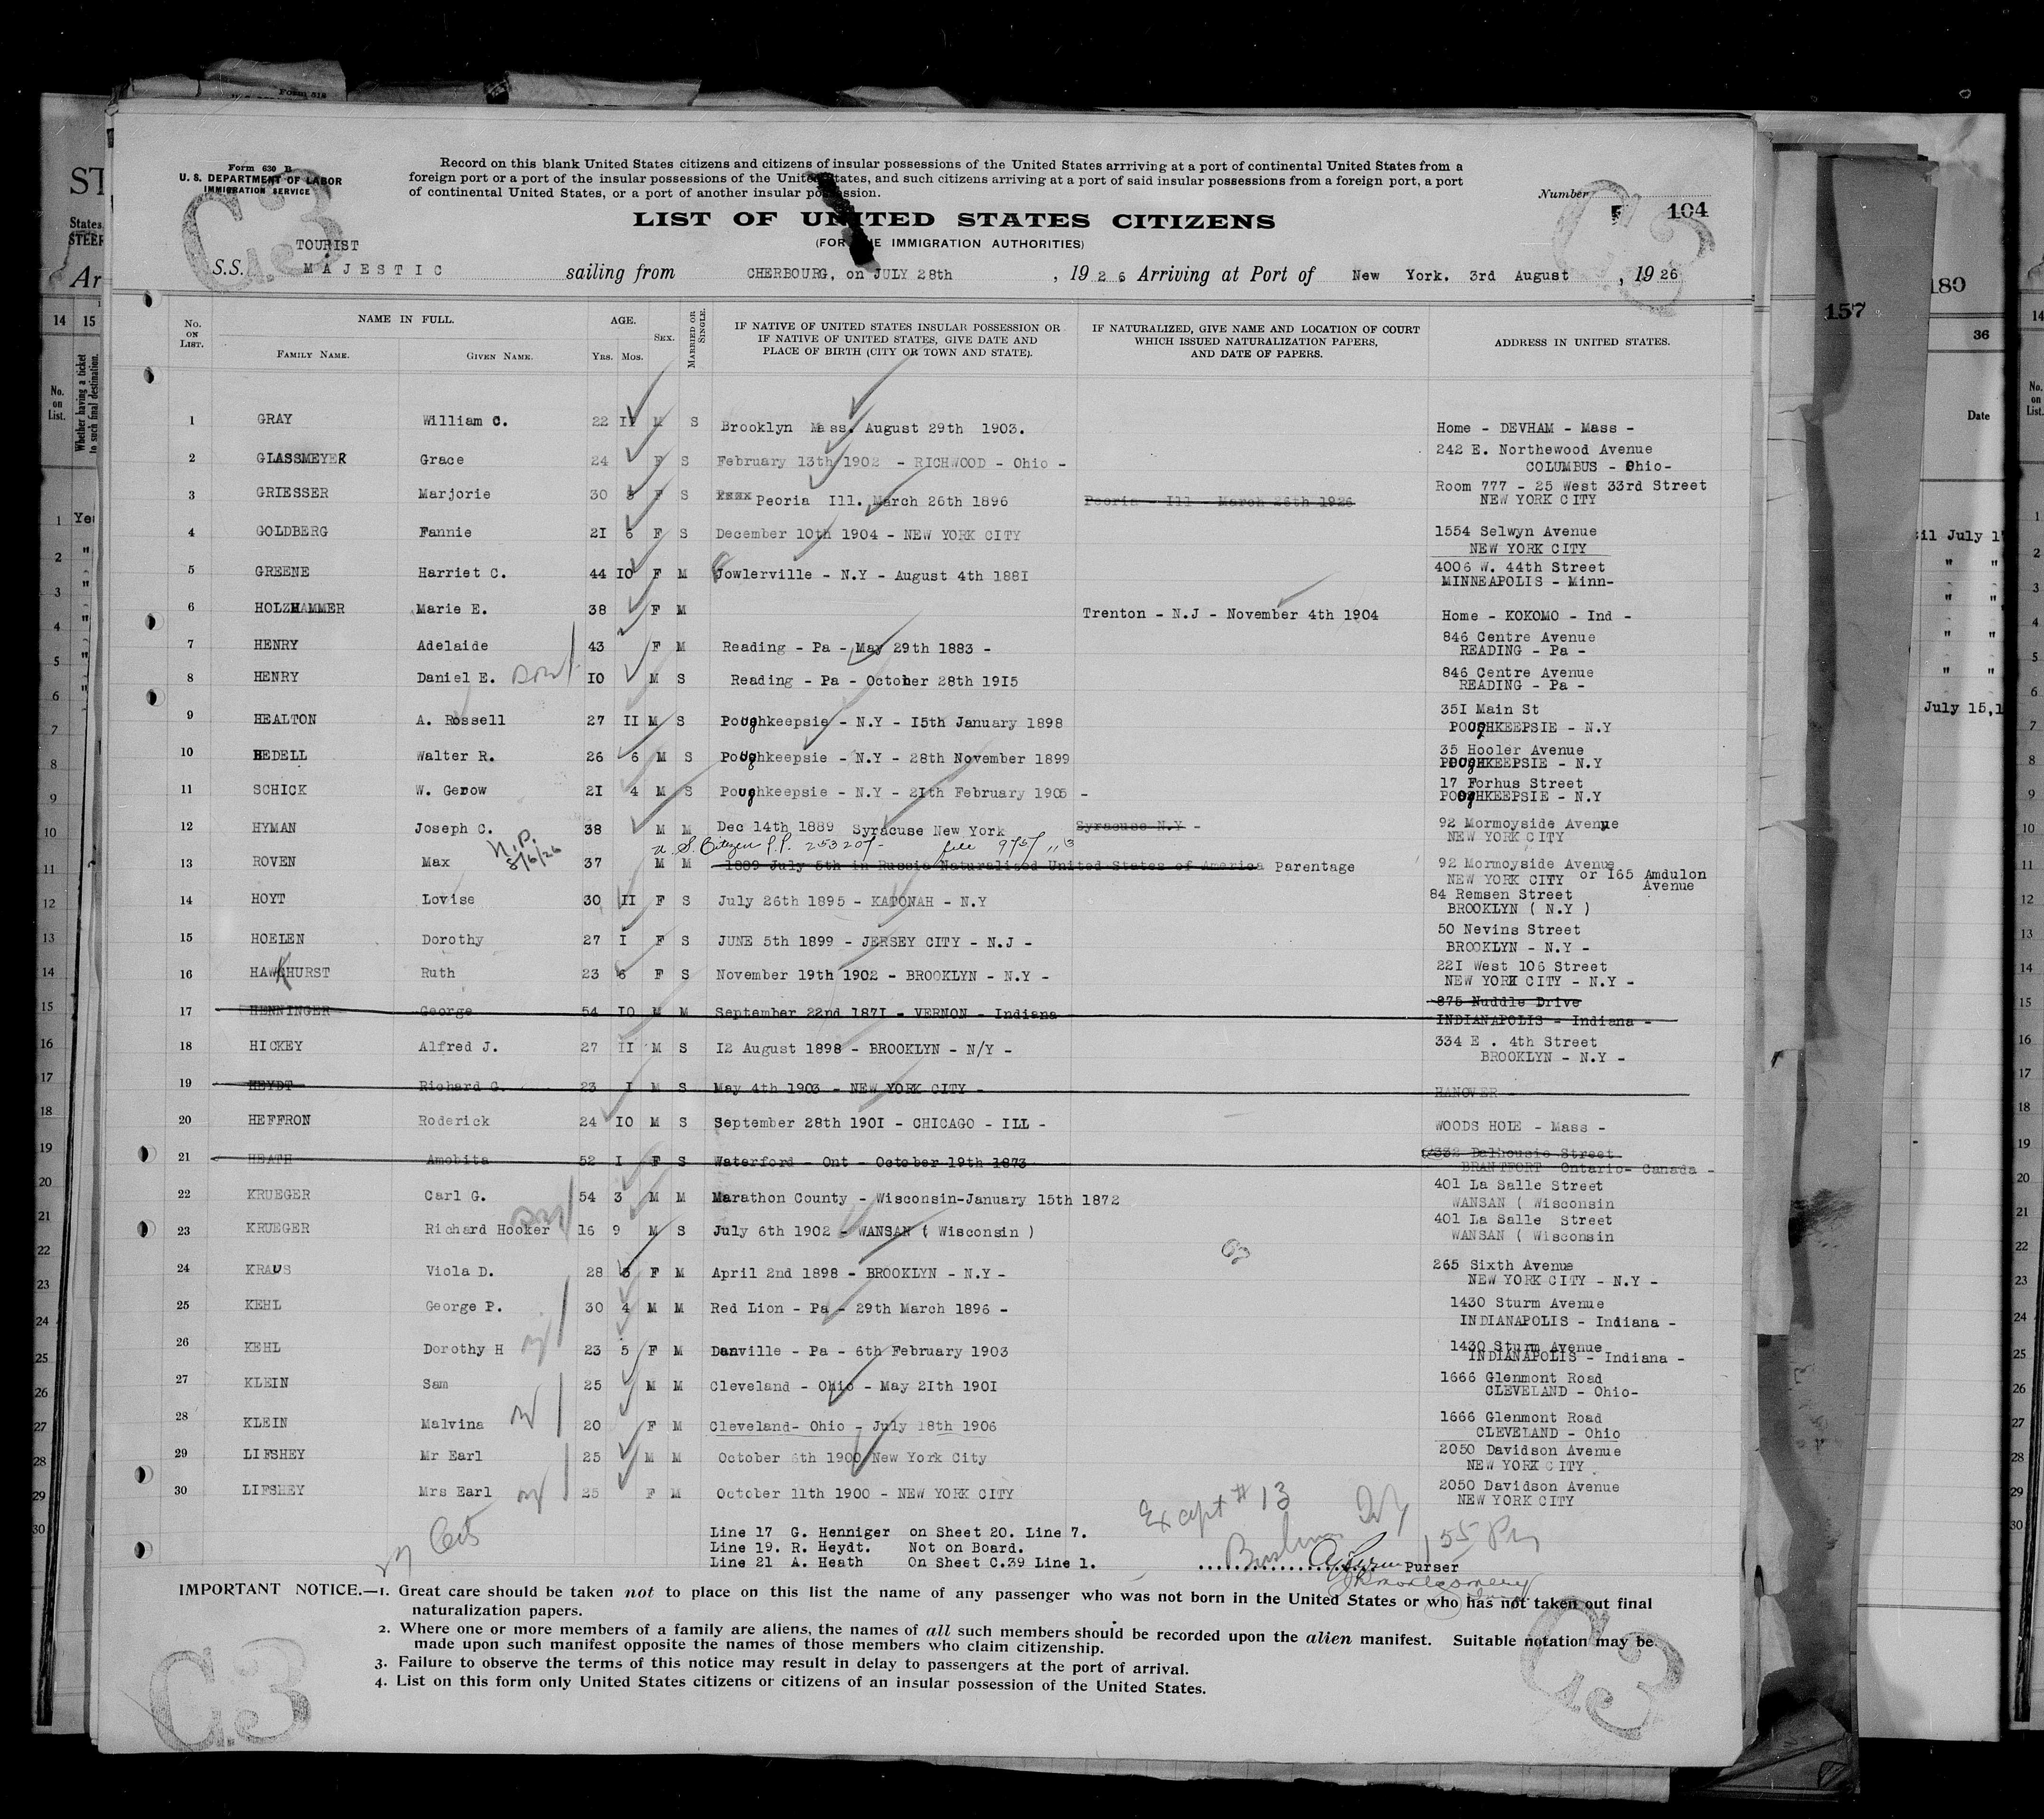 Form 630 B
U. S. DEPARTMENT OF LABOR
IMMIGRATION SERVICE
Record on this blank United States citizens and citizens of insular possessions of the United States arrriving at a port of continental United States from a
foreign port or a port of the insular possessions of the United States, and such citizens arriving at a port of said insular possessions from a foreign port, a port
of continental United States, or a port of another insular possession.
Number 104
LIST OF UNITED STATES CITIZENS
(FOR THE IMMIGRATION AUTHORITIES)
TOURIST
S.S. MAJESTIC sailing from CHERBOURG, on JULY 28th , 1926 Arriving at Port of New York. 3rd August , 1926
No. ON LIST. NAME IN FULL. FAMILY NAME. GIVEN NAME. AGE. YRS. MOS. SEX. MARRIED OR SINGLE. IF NATIVE OF UNITED STATES INSULAR POSSESSION OR IF NATIVE OF UNITED STATES, GIVE DATE AND PLACE OF BIRTH (CITY OR TOWN AND STATE). IF NATURALIZED, GIVE NAME AND LOCATION OF COURT WHICH ISSUED NATURALIZATION PAPERS, AND DATE OF PAPERS. ADDRESS IN UNITED STATES.
1 GRAY William C. 22 11 M S Brooklyn Mass. August 29th 1903. Home - DEVHAM - Mass -
2 GLASSMEYER Grace 24 F S February 13th 1902 - RICHWOOD - Ohio - 242 E. Northewood Avenue
COLUMBUS - Ohio-
3 GRIESSER Marjorie 30 3 F S Peoria Ill. March 26th 1896 Peoria - Ill - March 26th 1926 Room 777 - 25 West 33rd Street
NEW YORK CITY
4 GOLDBERG Fannie 21 6 F S December 10th 1904 - NEW YORK CITY 1554 Selwyn Avenue
NEW YORK CITY
5 GREENE Harriet C. 44 10 F M Fowlerville - N.Y - August 4th 1881 4006 W. 44th Street
MINNEAPOLIS - Minn-
6 HOLZHAMMER Marie E. 38 F M Trenton - N.J - November 4th 1904 Home - KOKOMO - Ind -
7 HENRY Adelaide 43 F M Reading - Pa - May 29th 1883 - 846 Centre Avenue
READING - Pa -
8 HENRY Daniel E. 10 M S Reading - Pa - October 28th 1915 846 Centre Avenue
READING - Pa -
9 HEALTON A. Rossell 27 11 M S Poughkeepsie - N.Y - 15th January 1898 351 Main St
POUGHKEEPSIE - N.Y
10 HEDELL Walter R. 26 6 M S Poughkeepsie - N.Y - 28th November 1899 35 Hooler Avenue
POUGHKEEPSIE - N.Y
11 SCHICK W. Gerow 21 4 M S Poughkeepsie - N.Y - 21th February 1905 - 17 Forhus Street
POUGHKEEPSIE - N.Y
12 HYMAN Joseph C. 38 M M Dec 14th 1889 Syracuse New York Syracuse N.Y - 92 Mormoyside Avenue
NEW YORK CITY
N.P. 8/6/26 U. S. Citizen P.P. 253207- file
13 ROVEN Max 37 M M 1889 July 5th in Russia Naturalized United States of America Parentage 92 Mormoyside Avenue
NEW YORK CITY or 165 Amdulon Avenue
14 HOYT Lovise 30 11 F S July 26th 1895 - KATONAH - N.Y 84 Remsen Street
BROOKLYN ( N.Y )
15 HOELEN Dorothy 27 1 F S JUNE 5th 1899 - JERSEY CITY - N.J - 50 Nevins Street
BROOKLYN - N.Y -
16 HAWKHURST Ruth 23 6 F S November 19th 1902 - BROOKLYN - N.Y - 221 West 106 Street
NEW YORK CITY - N.Y -
17 HENNINGER George 54 10 M M September 22nd 1871 - VERNON - Indiana 875 Nuddle Drive
INDIANAPOLIS - Indiana -
18 HICKEY Alfred J. 27 11 M S 12 August 1898 - BROOKLYN - N/Y - 334 E . 4th Street
BROOKLYN - N.Y -
19 HEYDT Richard G. 23 1 M S May 4th 1903 - NEW YORK CITY - HANOVER -
20 HEFFRON Roderick 24 10 M S September 28th 1901 - CHICAGO - ILL - WOODS HOLE - Mass -
21 HEATH Amobita 52 1 F S Waterford - Ont - October 19th 1873 332 Dalhousie Street
BRANTFORT Ontario- Canada -
22 KRUEGER Carl G. 54 3 M M Marathon County - Wisconsin-January 15th 1872 401 La Salle Street
WANSAN ( Wisconsin
23 KRUEGER Richard Hooker 16 9 M S July 6th 1902 - WANSAN ( Wisconsin ) 401 La Salle Street
WANSAN ( Wisconsin
24 KRAUS Viola D. 28 3 F M April 2nd 1898 - BROOKLYN - N.Y - 265 Sixth Avenue
NEW YORK CITY - N.Y -
25 KEHL George P. 30 4 M M Red Lion - Pa - 29th March 1896 - 1430 Sturm Avenue
INDIANAPOLIS - Indiana -
26 KEHL Dorothy H 23 5 F M Danville - Pa - 6th February 1903 1430 Sturm Avenue
INDIANAPOLIS - Indiana -
27 KLEIN Sam 25 M M Cleveland - Ohio - May 21th 1901 1666 Glenmont Road
CLEVELAND - Ohio-
28 KLEIN Malvina 20 F M Cleveland- Ohio - July 18th 1906 1666 Glenmont Road
CLEVELAND - Ohio
29 LIFSHEY Mr Earl 25 M M October 6th 1900 New York City 2050 Davidson Avenue
NEW YORK CITY
30 LIFSHEY Mrs Earl 25 F M October 11th 1900 - NEW YORK CITY 2050 Davidson Avenue
NEW YORK CITY
Except #13
Line 17 G. Henniger on Sheet 20. Line 7.
Line 19. R. Heydt. Not on Board.
Line 21 A. Heath On Sheet C.39 Line 1.
Purser
IMPORTANT NOTICE.—1. Great care should be taken not to place on this list the name of any passenger who was not born in the United States or who has not taken out final
naturalization papers.
2. Where one or more members of a family are aliens, the names of all such members should be recorded upon the alien manifest. Suitable notation may be
made upon such manifest opposite the names of those members who claim citizenship.
3. Failure to observe the terms of this notice may result in delay to passengers at the port of arrival.
4. List on this form only United States citizens or citizens of an insular possession of the United States.
157
180
36
Date
July 15,1